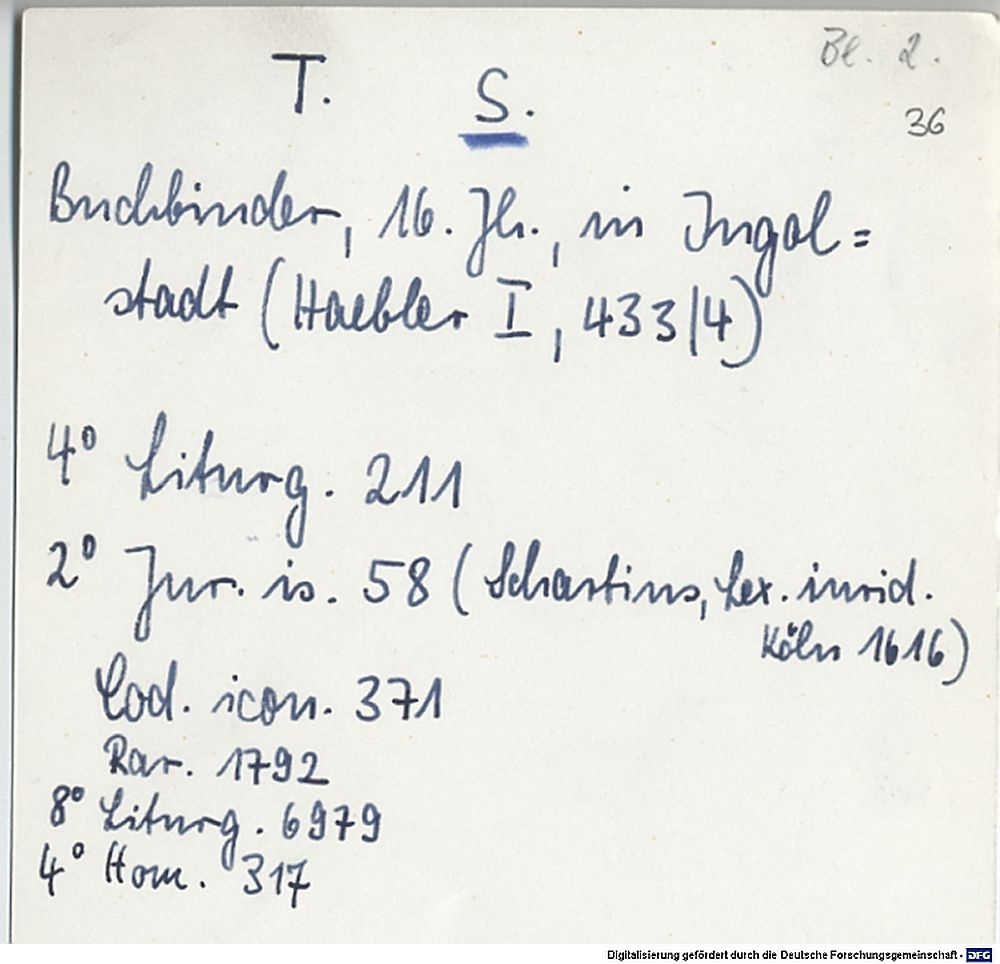 Bl. 2.
T. S.
36
Buchbinder, 16. Jh., in Ingol=
stadt (Haebler I, 433/4)
4° Liturg. 211
2° Jur. is. 58 (Schartius, Lex. iurid.
Köln 1616)
Cod. icon. 371
Rar. 1792
8° Liturg. 6979
4° Hom. 317
Digitalisierung gefördert durch die Deutsche Forschungsgemeinschaft - DFG